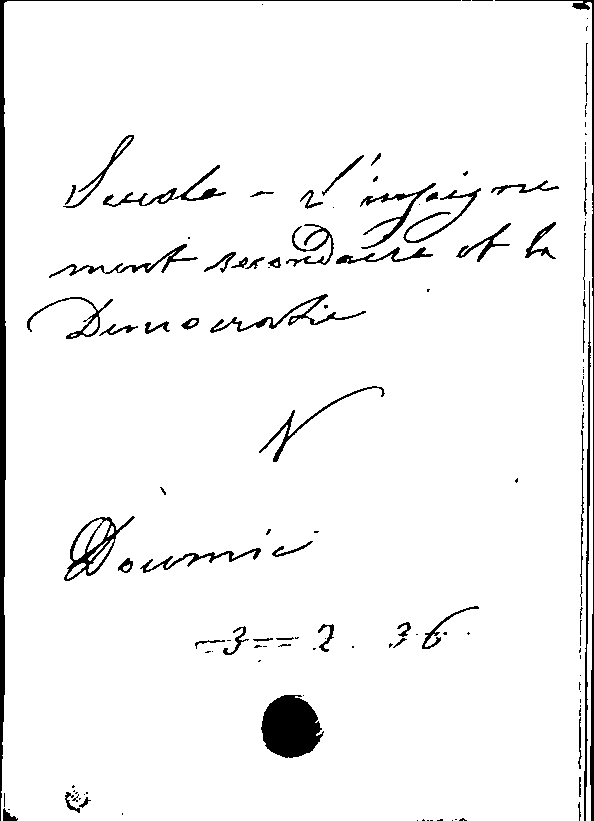 Scuola - L'inseigne
ment secondaire et la
Democratie
V
Doumic
3 = 2. 36.